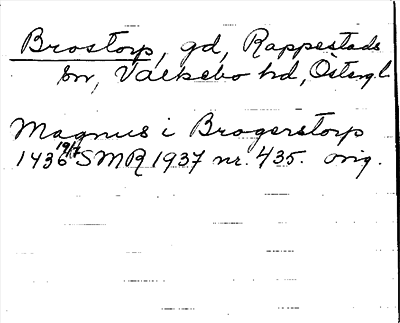 Brostorp, gd, Rappestads
sn, Valkebo hd, Östergl.
Magnus i Brogerstorp
1436 19/7 SMR 1937 nr. 435. orig.